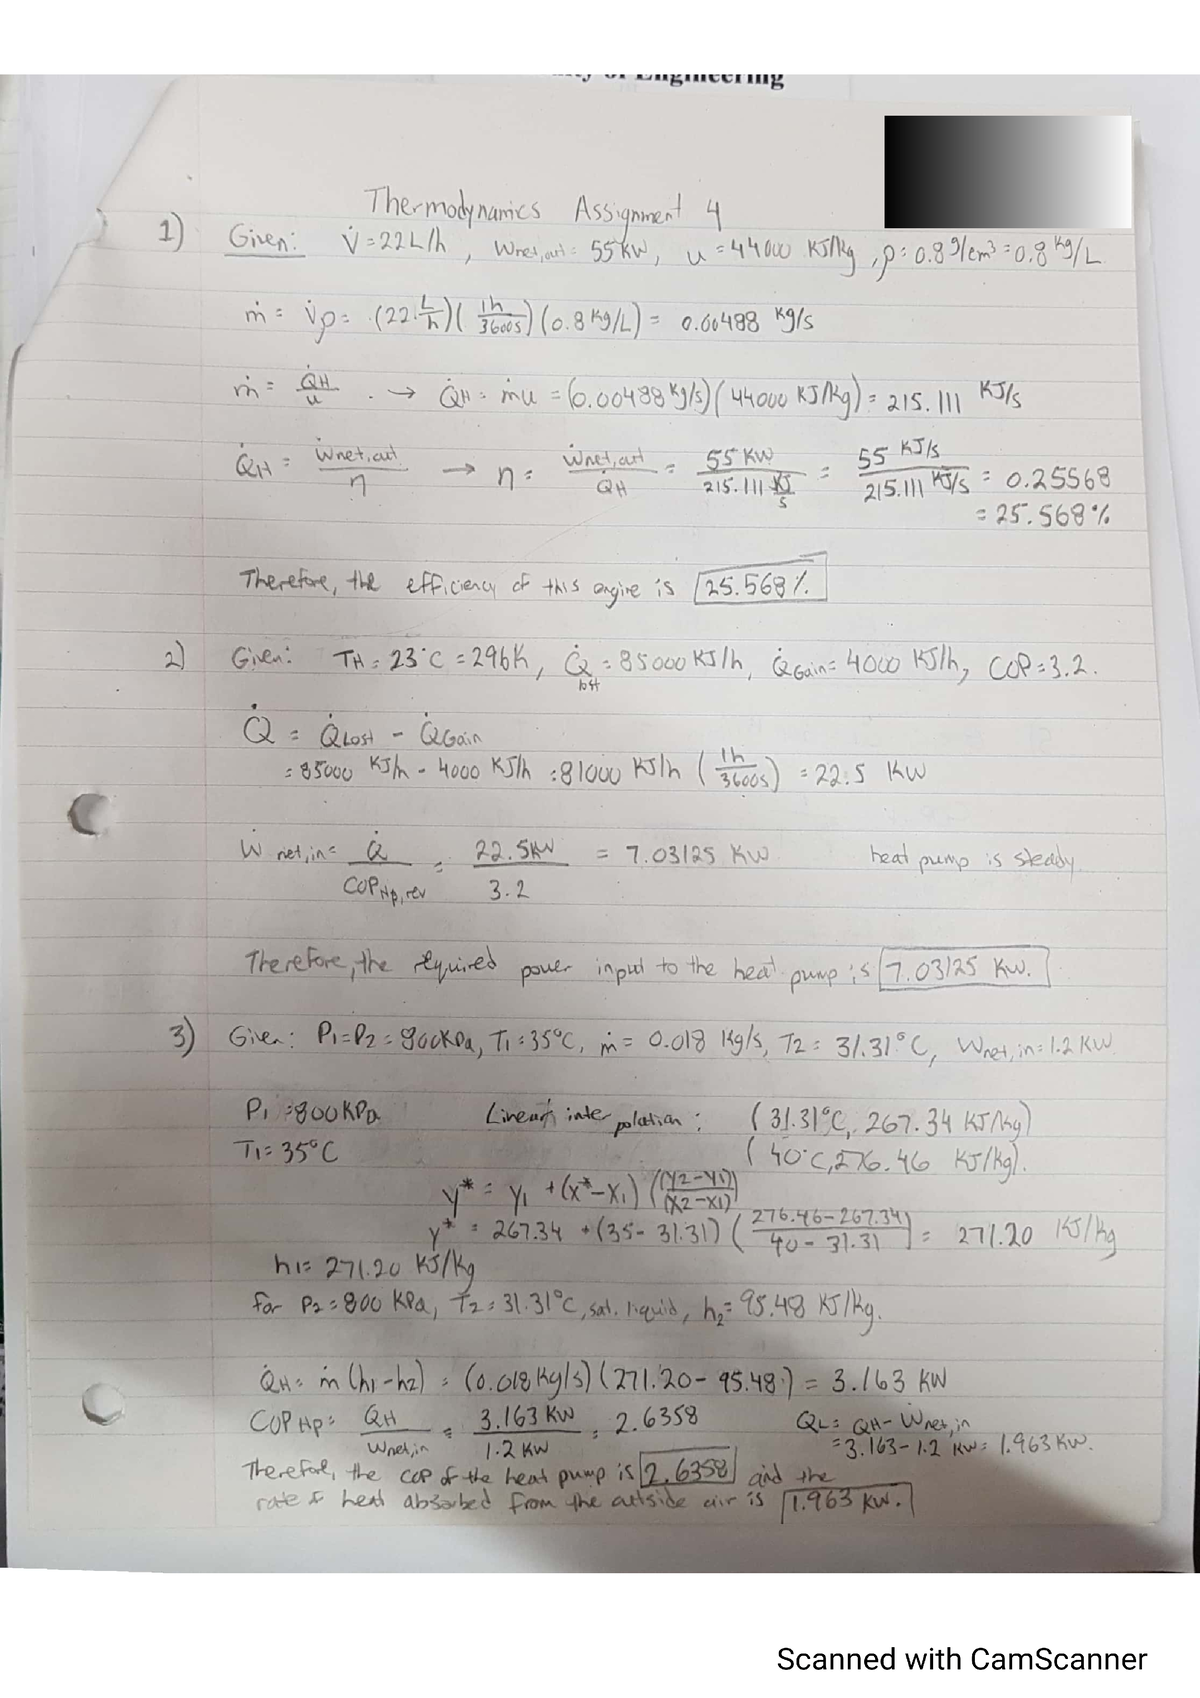 Engineering
Thermodynamics Assignment 4
1) Given: V̇ = 22 L/h, Wnet,out = 55 kW, u = 44000 KJ/kg, ρ = 0.8 g/cm³ = 0.8 kg/L
ṁ = V̇ρ = (22 L/h)(1h/3600s)(0.8 Kg/L) = 0.00488 Kg/s
ṁ = Q̇H/u → Q̇H = ṁu = (0.00488 Kg/s)(44000 KJ/kg) = 215.111 KJ/s
Q̇H = Ẇnet,out/η → η = Ẇnet,out/Q̇H = 55 KW/215.111 KJ/s = 55 KJ/s/215.111 KJ/s = 0.25568
= 25.568%
Therefore, the efficiency of this engine is 25.568%
2) Given: TH = 23°C = 296K, Q̇lost = 85000 KJ/h, Q̇Gain = 4000 KJ/h, COP = 3.2.
Q̇ = Q̇Lost - Q̇Gain
= 85000 KJ/h - 4000 KJ/h = 81000 KJ/h (1h/3600s) = 22.5 KW
Ẇnet,in = Q̇/COPHp,rev = 22.5KW/3.2 = 7.03125 KW heat pump is steady.
Therefore, the required power input to the heat pump is 7.03125 KW.
3) Given: P1=P2 = 800KPa, T1 = 35°C, ṁ = 0.018 Kg/s, T2 = 31.31°C, Wnet,in = 1.2 KW
P1 = 800KPa Linear interpolation: (31.31°C, 267.34 KJ/kg)
T1 = 35°C (40°C, 276.46 KJ/kg).
y* = y1 + (x*-x1) ((y2-y1)/(x2-x1))
y* = 267.34 + (35 - 31.31) (276.46-267.34/40 - 31.31) = 271.20 KJ/kg
h1 = 271.20 KJ/kg
for P2 = 800 KPa, T2 = 31.31°C, sat. liquid, h2 = 95.48 KJ/kg.
Q̇H = ṁ(h1-h2) = (0.018 Kg/s)(271.20 - 95.48) = 3.163 KW
COP Hp = QH/Wnet,in = 3.163 KW/1.2 KW = 2.6358 QL = QH - Wnet,in
= 3.163 - 1.2 KW = 1.963 KW.
Therefore, the COP of the heat pump is 2.6358 and the
rate of heat absorbed from the outside air is 1.963 KW.
Scanned with CamScanner